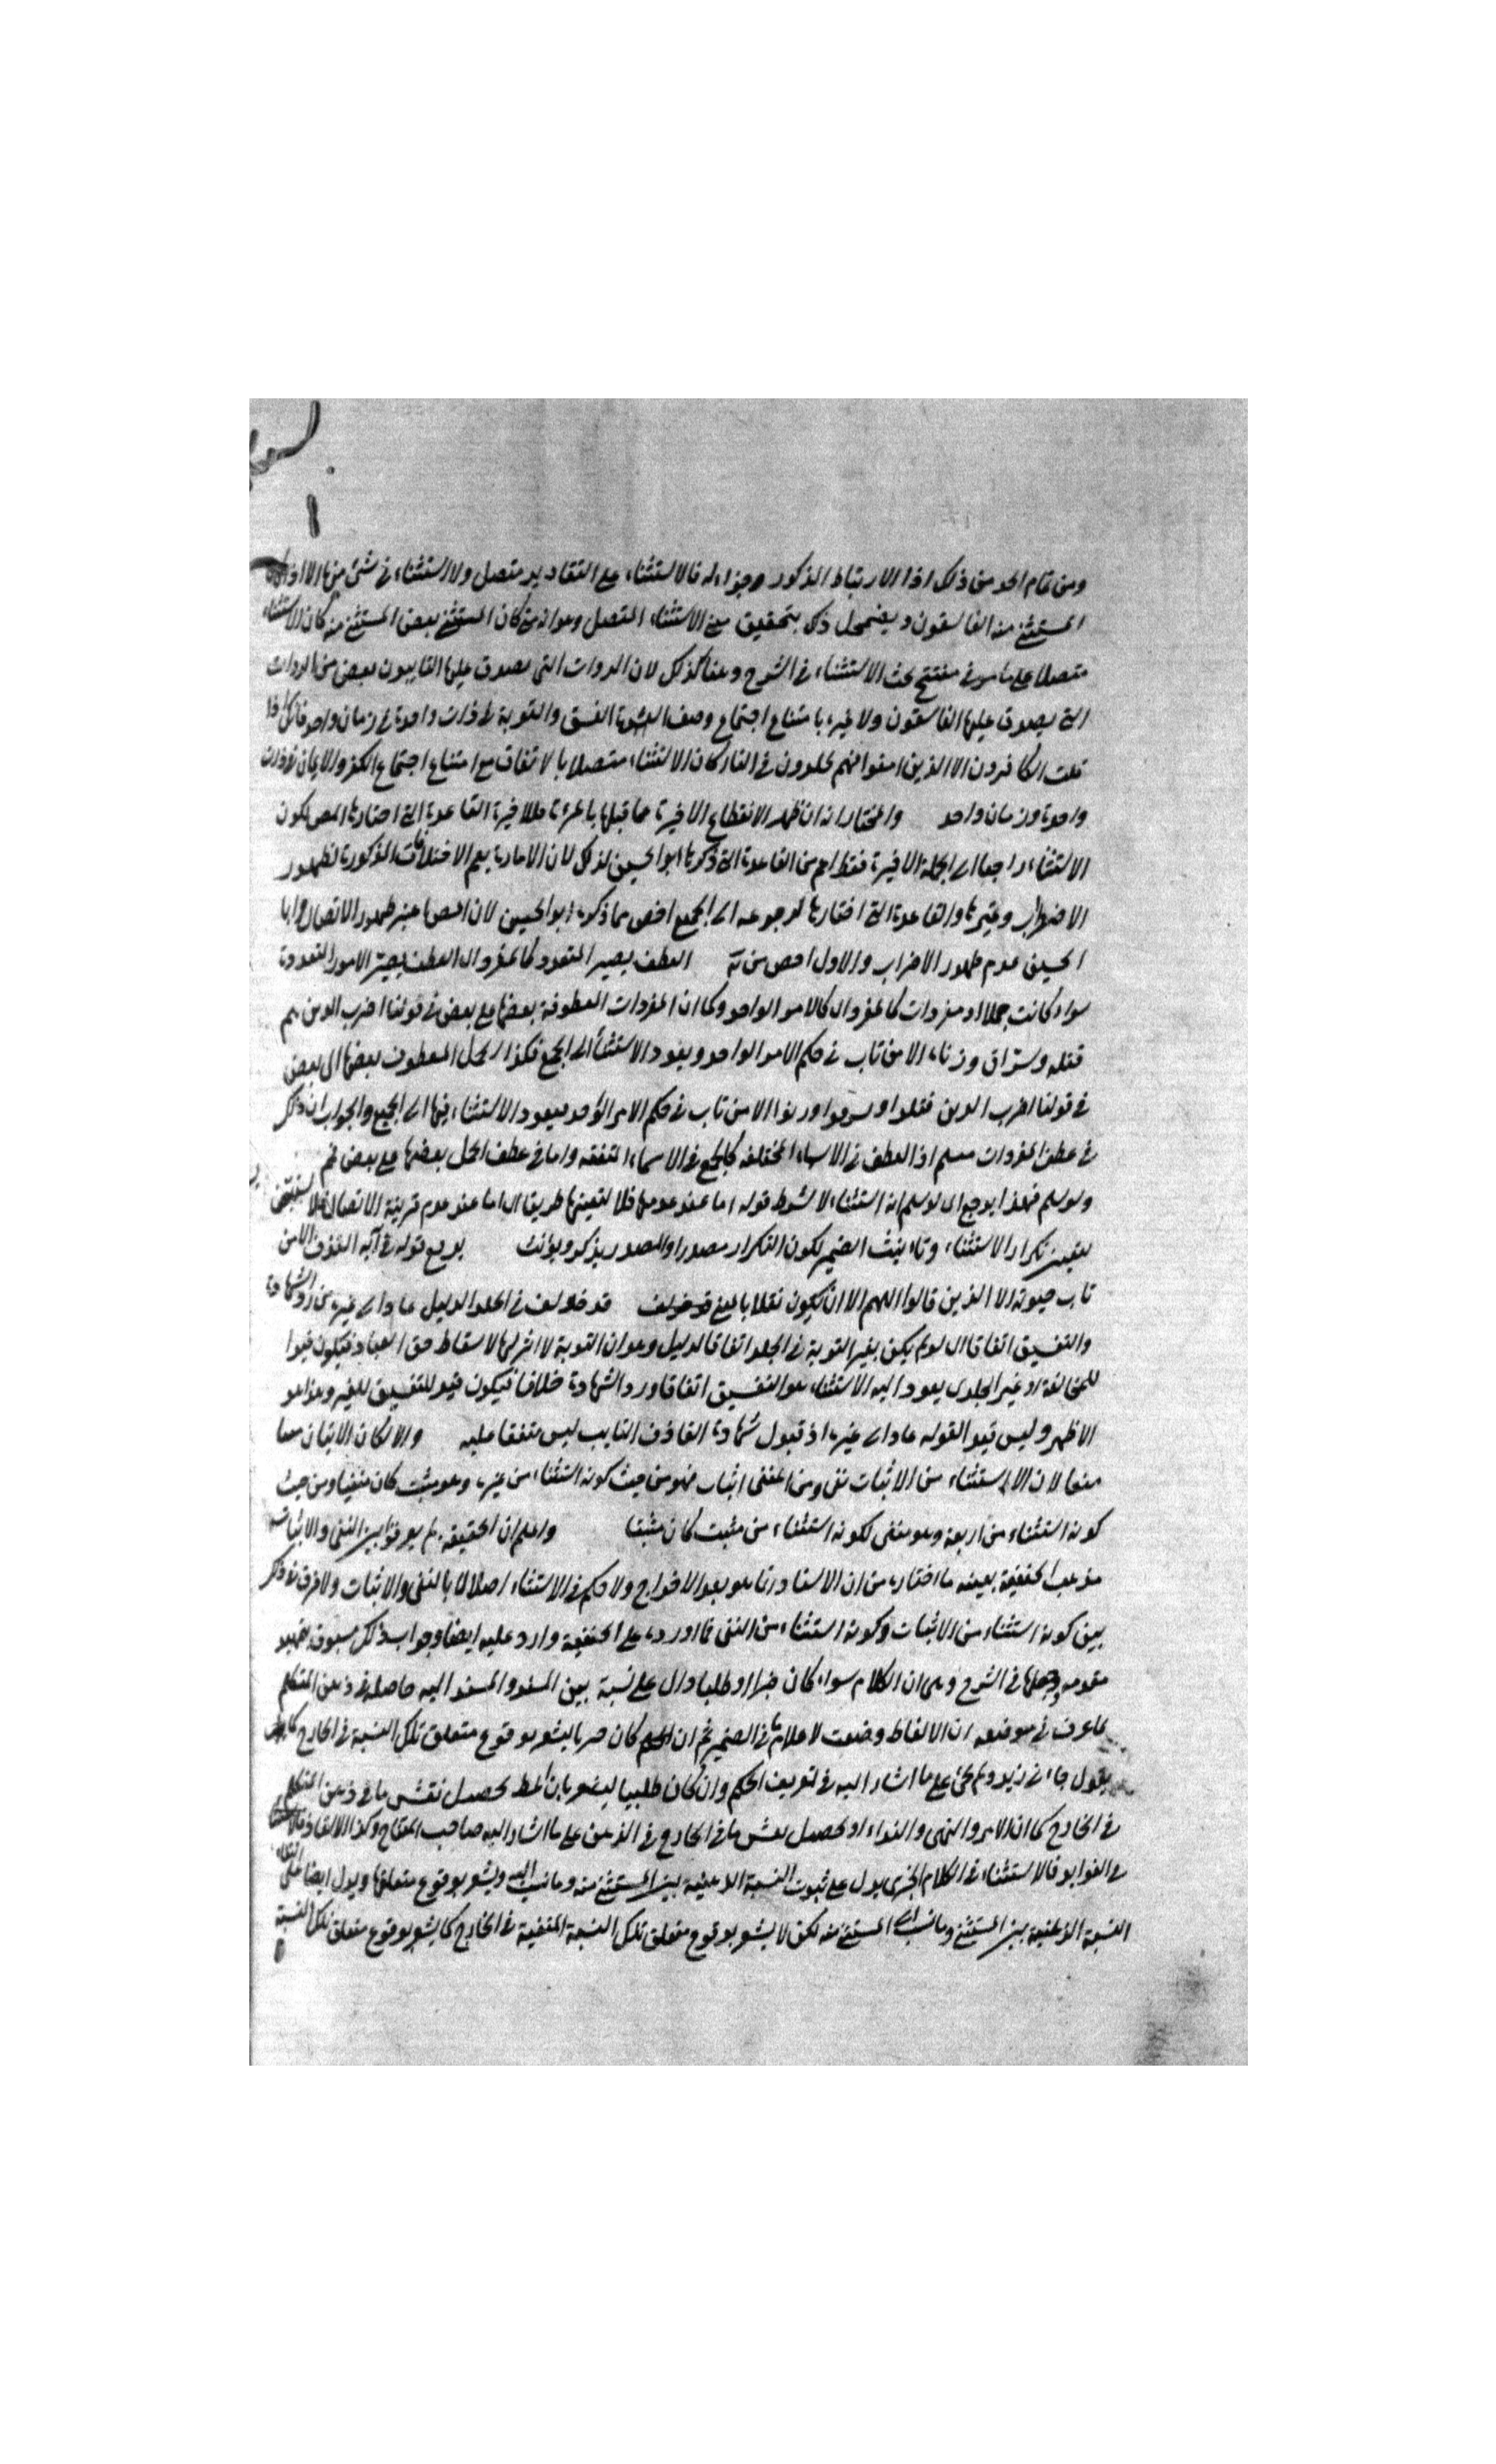 ومن تمام الحد من ذلك اذا الارتباط المذكور وجزاء له فالاستثناء على التقادير متصل ولا استثناء في شئ منها الا اذا كان
المستثنى منه الفاسقون ويضمحل ذلك بتحقيق معنى الاستثناء المتصل وهو انه متى كان المستثنى بعض المستثنى منه كان الاستثناء
متصلا على ما مر في مفتتح بحث الاستثناء في الشرح وهنا كذلك لان الذوات التي يصدق عليها التايبون بعض من الذوات
التي يصدق عليها الفاسقون ولا غيره بامتناع اجتماع وصف الفسق والتوبة في ذات واحدة في زمان واحد فانك اذا
قلت الكافرون الا الذين امنوا منهم مخلدون في النار كان الاستثناء متصلا بالاتفاق مع امتناع اجتماع الكفر والايمان في ذات
واحدة وزمان واحد والمختار انه ان ظهر الانقطاع الاخيرة عما قبلها بامارة فللاخيرة القاعدة التي اختارها المص لكون
الاستثناء راجعا الى الجملة الاخيرة فقط اعم من القاعدة التي ذكرها ابو الحسين لذلك لان الامارة يعم الاختلافات المذكورة لظهور
الاضراب وغيرها والقاعدة التي اختارها لرجوعه الى الجميع اخص مما ذكره ابو الحسين لان المص اعتبر ظهور الاتصال وابا
الحسين عدم ظهور الاضراب والاول اخص من العطف يصير المتعدد كالمفرد ال العطف يصير الامور المتعددة
سواء كانت جملا او مفردات كالمفرد ال كالامر الواحد وكما ان المفردات المعطوفة بعضها مع بعض في قولنا اضرب الذين هم
قتلة وسراق وزناة الا من تاب في حكم الامر الواحد ويعود الاستثناء الى الجميع فكذا الجمل المعطوف بعضها الى بعض
في قولنا اضرب الذين قتلوا وسرقوا وزنوا الا من تاب في حكم الامر الواحد فيعود الاستثناء فيها الى الجميع والجواب ان ذلك
في عطف المفردات مسلم اذ العطف في الاسماء المختلفة كالجمع في الاسماء المتفقة واما في عطف الجمل بعضها مع بعض ثم
ولو سلم فهذا يرجع ال لو سلم انه استثناء لا شرط قوله اما عند عدمها فلا لتعينها طريقا ال اما عند عدم قرينة الاتصال فلا
لتعين تكرار الاستثناء وتانيث الضمير لكون التكرار مصدرا والمصدر يذكر ويؤنث قوله في آية القذف الا من
تاب صوته الا الذين قالوا اللهم الا ان يكون نقلا بالمعنى قد خولف في الجلد الدليل عاد الى غيره من رد الشهادة
والتفسيق اتفاقا ال لو لم يكن بغير التوبة في الجلد اتفاقا لدليل وهو ان التوبة لا اثر لها لاسقاط حق العباد فيكون قيدا
للمخالفة او غير الجلد يعود اليه الاستثناء هو التفسيق اتفاقا ورد الشهادة خلافا فيكون قيد للتفسيق للغير وهذا هو
الاظهر وليس قيد القوله عاد الى غيره اذ قبول شهادة القاذف التايب ليس متفقا عليه والا لكان الاثبات معا
منعا لان الاستثناء من الاثبات نفي ومن المنفي اثبات فهو من حيث كونه استثناء من غيره وهو مثبت كان منفيا ومن حيث
كونه استثناء من اربعة وهو منفى لكونه استثناء من مثبت كان مثبتا واعلم ان الحنفية لم يفرقوا بين النفي والاثبات
مذهب الحنفية بعينه ما اختاره من ان الاسناد انما هو بعد الاخراج ولا حكم في الاستثناء اصلا لا بالنفي والاثبات ولا فرق في ذلك
بين كونه استثناء من الاثبات وكونه استثناء من النفي فما اورده على الحنفية وارد عليه ايضا وجواب ذلك مسبوق بتمهيد
مقدمه في الشرح وهى ان الكلام سواء كان خبرا او طلبا دال على نسبة بين المسند والمسند اليه حاصلة في ذهن المتكلم
لما عرف في موضعه ان الالفاظ وضعت لاعلام ما في الضمير ثم ان كان خبريا يشعر بوقوع متعلق تلك النسبة في الخارج
يقول جاءني زيد ولم يجئ على ما اشار اليه في تعريف الحكم وان كان طلبيا يشعر بان المط تحصيل نقش ما في ذهن المتكلم
في الخارج كما ان الامر والنهى والنداء او تحصيل نقش ما في الخارج في الذهن على ما اشار اليه صاحب المفتاح
فالاستثناء في الكلام الخبرى يدل على ثبوت النسبة الذهنية بين المستثنى منه وما نسب اليه ويشعر بوقوع متعلقها ويدل ايضا على
النسبة الذهنية بين المستثنى وما نسب الى المستثنى منه لكن لا يشعر بوقوع متعلق تلك النسبة المنفية في الخارج كما يشعر بوقوع متعلق تلك النسبة